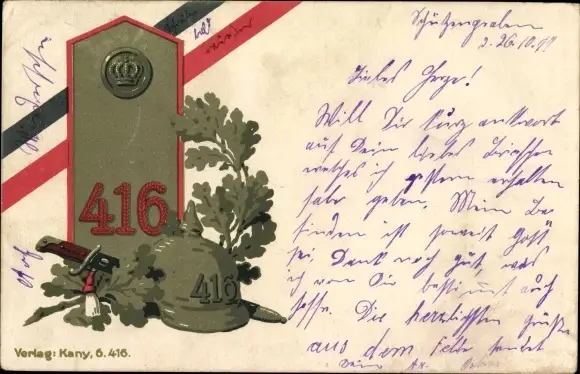 416
416
Verlag: Kany, 6.416.
Schützengraben
d. 26.10.17
Liebes Grege!
Will Dir kurz antwort
auf Dein liebes Briefchen
welches ich gestern erhalten
habe geben. Mein Be
finden ist soweit Gott
sei Dank noch gut, was
ich von Dir bestimmt auch
hoffe. Die herzlichsten Grüße
aus dem Felde sendet
Dein